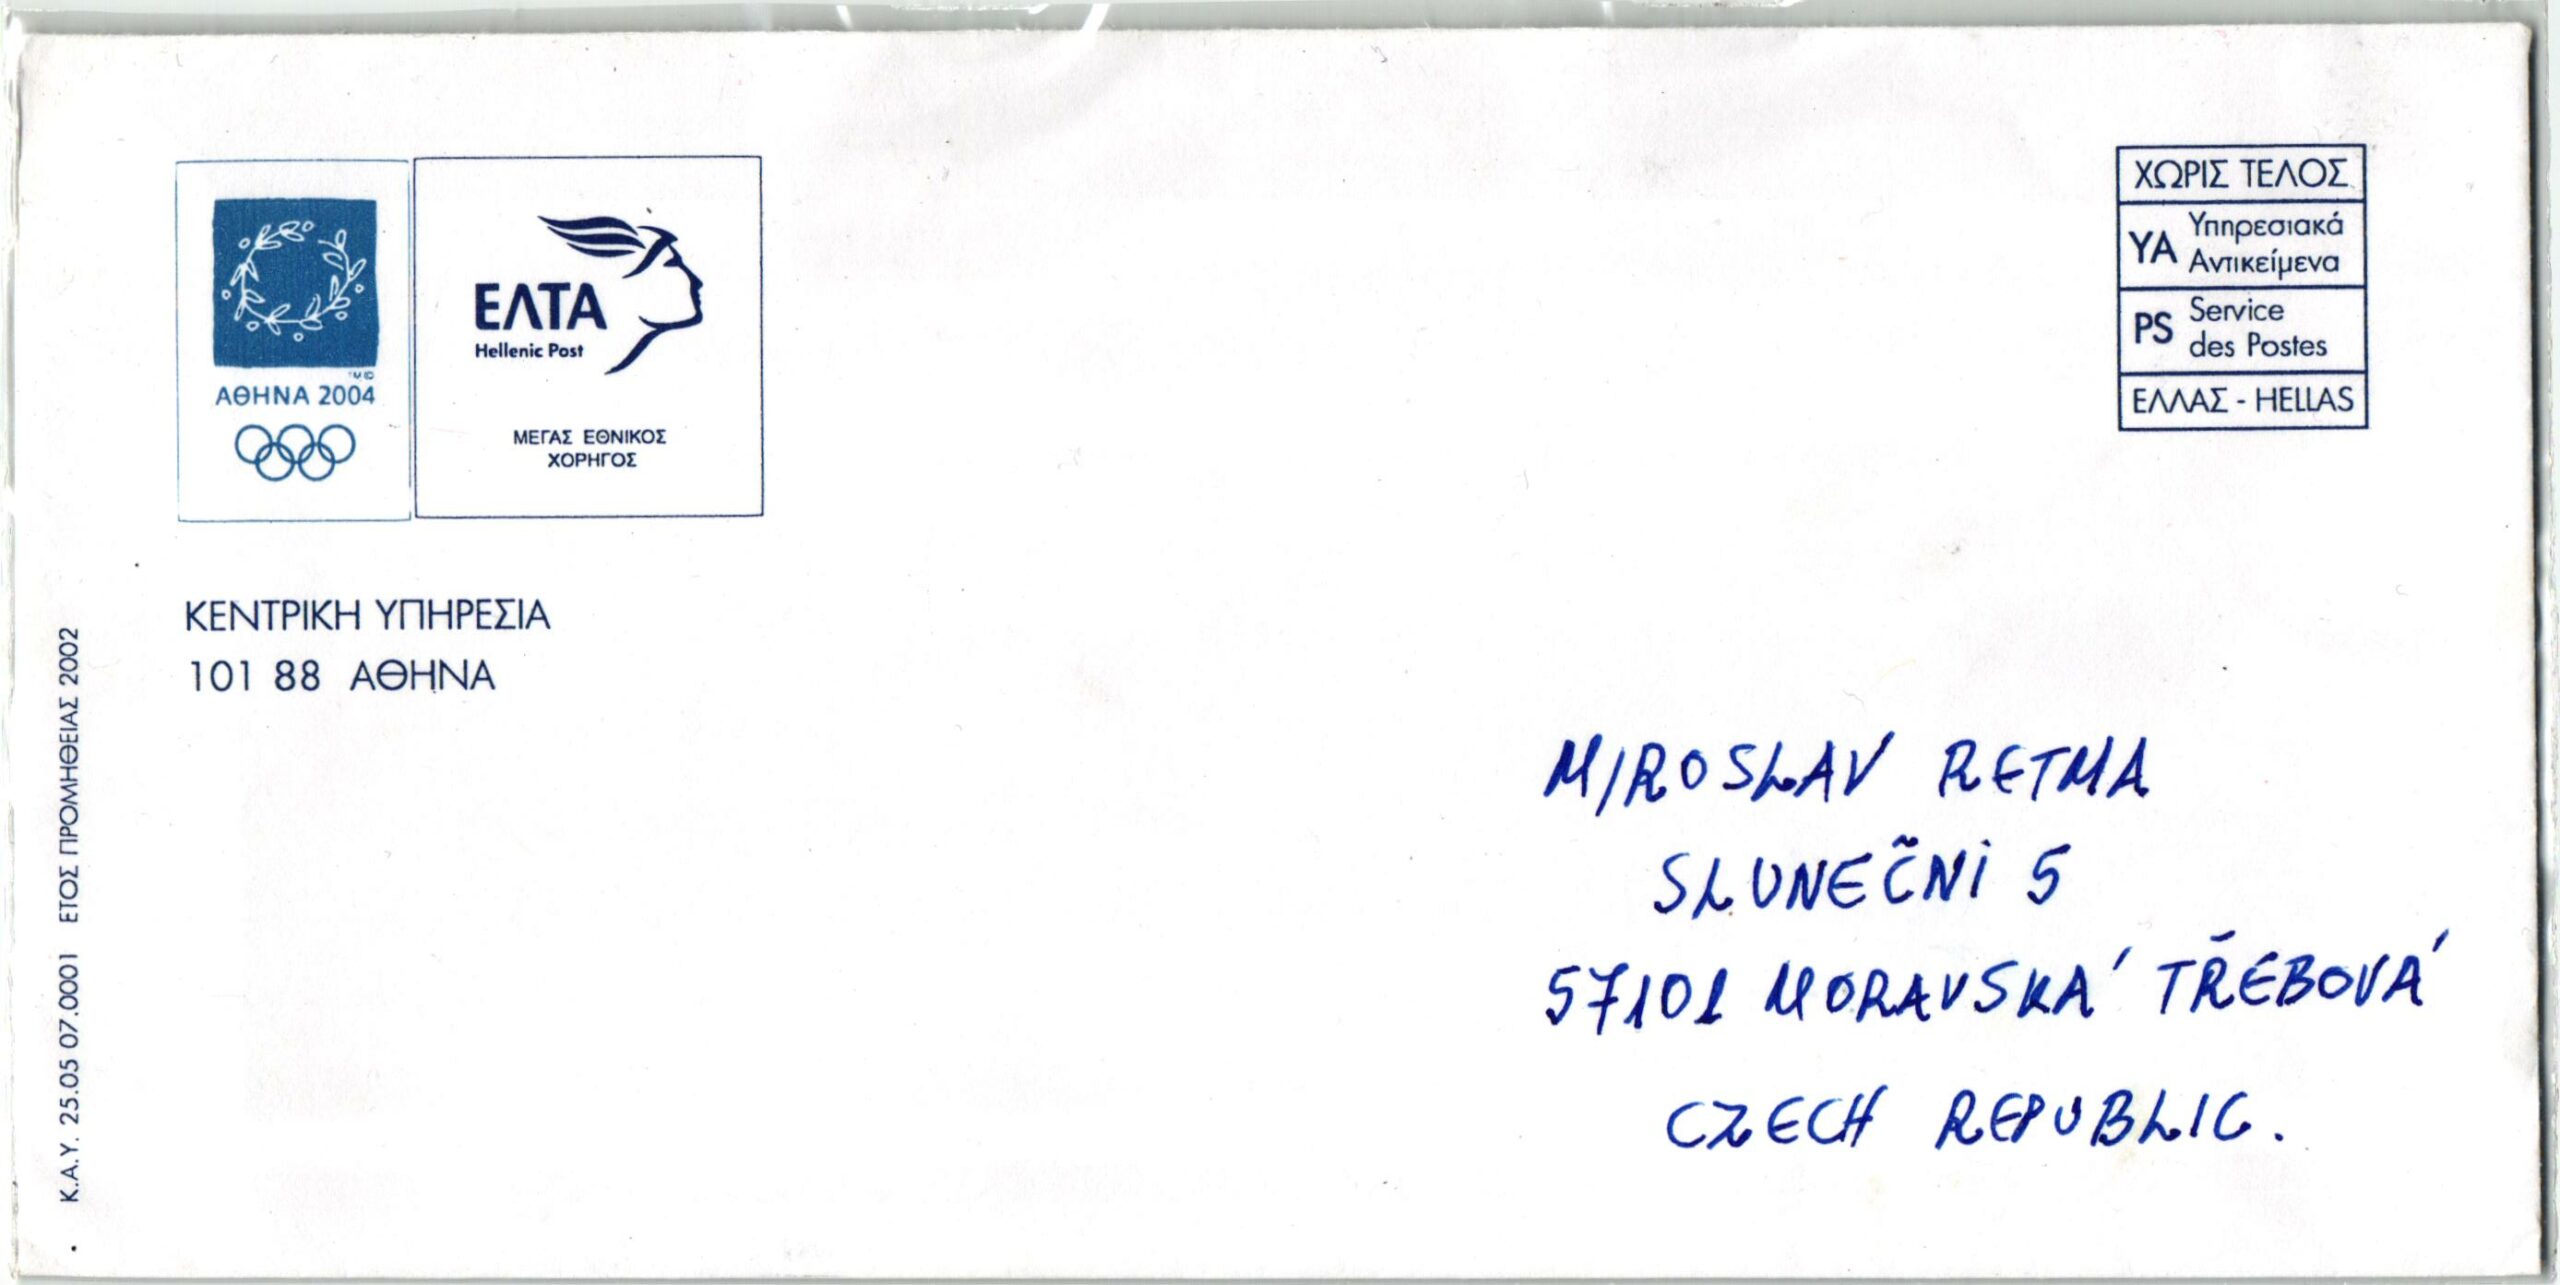 ΑΘΗΝΑ 2004
ΕΛΤΑ
Hellenic Post
ΜΕΓΑΣ ΕΘΝΙΚΟΣ
ΧΟΡΗΓΟΣ
ΧΩΡΙΣ ΤΕΛΟΣ
ΥΑ Υπηρεσιακά
Αντικείμενα
PS Service
des Postes
ΕΛΛΑΣ - HELLAS
ΚΕΝΤΡΙΚΗ ΥΠΗΡΕΣΙΑ
101 88 ΑΘΗΝΑ
Κ.Α.Υ. 25.05 07.0001 ΕΤΟΣ ΠΡΟΜΗΘΕΙΑΣ 2002
MIROSLAV RETMA
SLUNEČNI 5
57101 MORAVSKÁ TŘEBOVÁ
CZECH REPUBLIC.